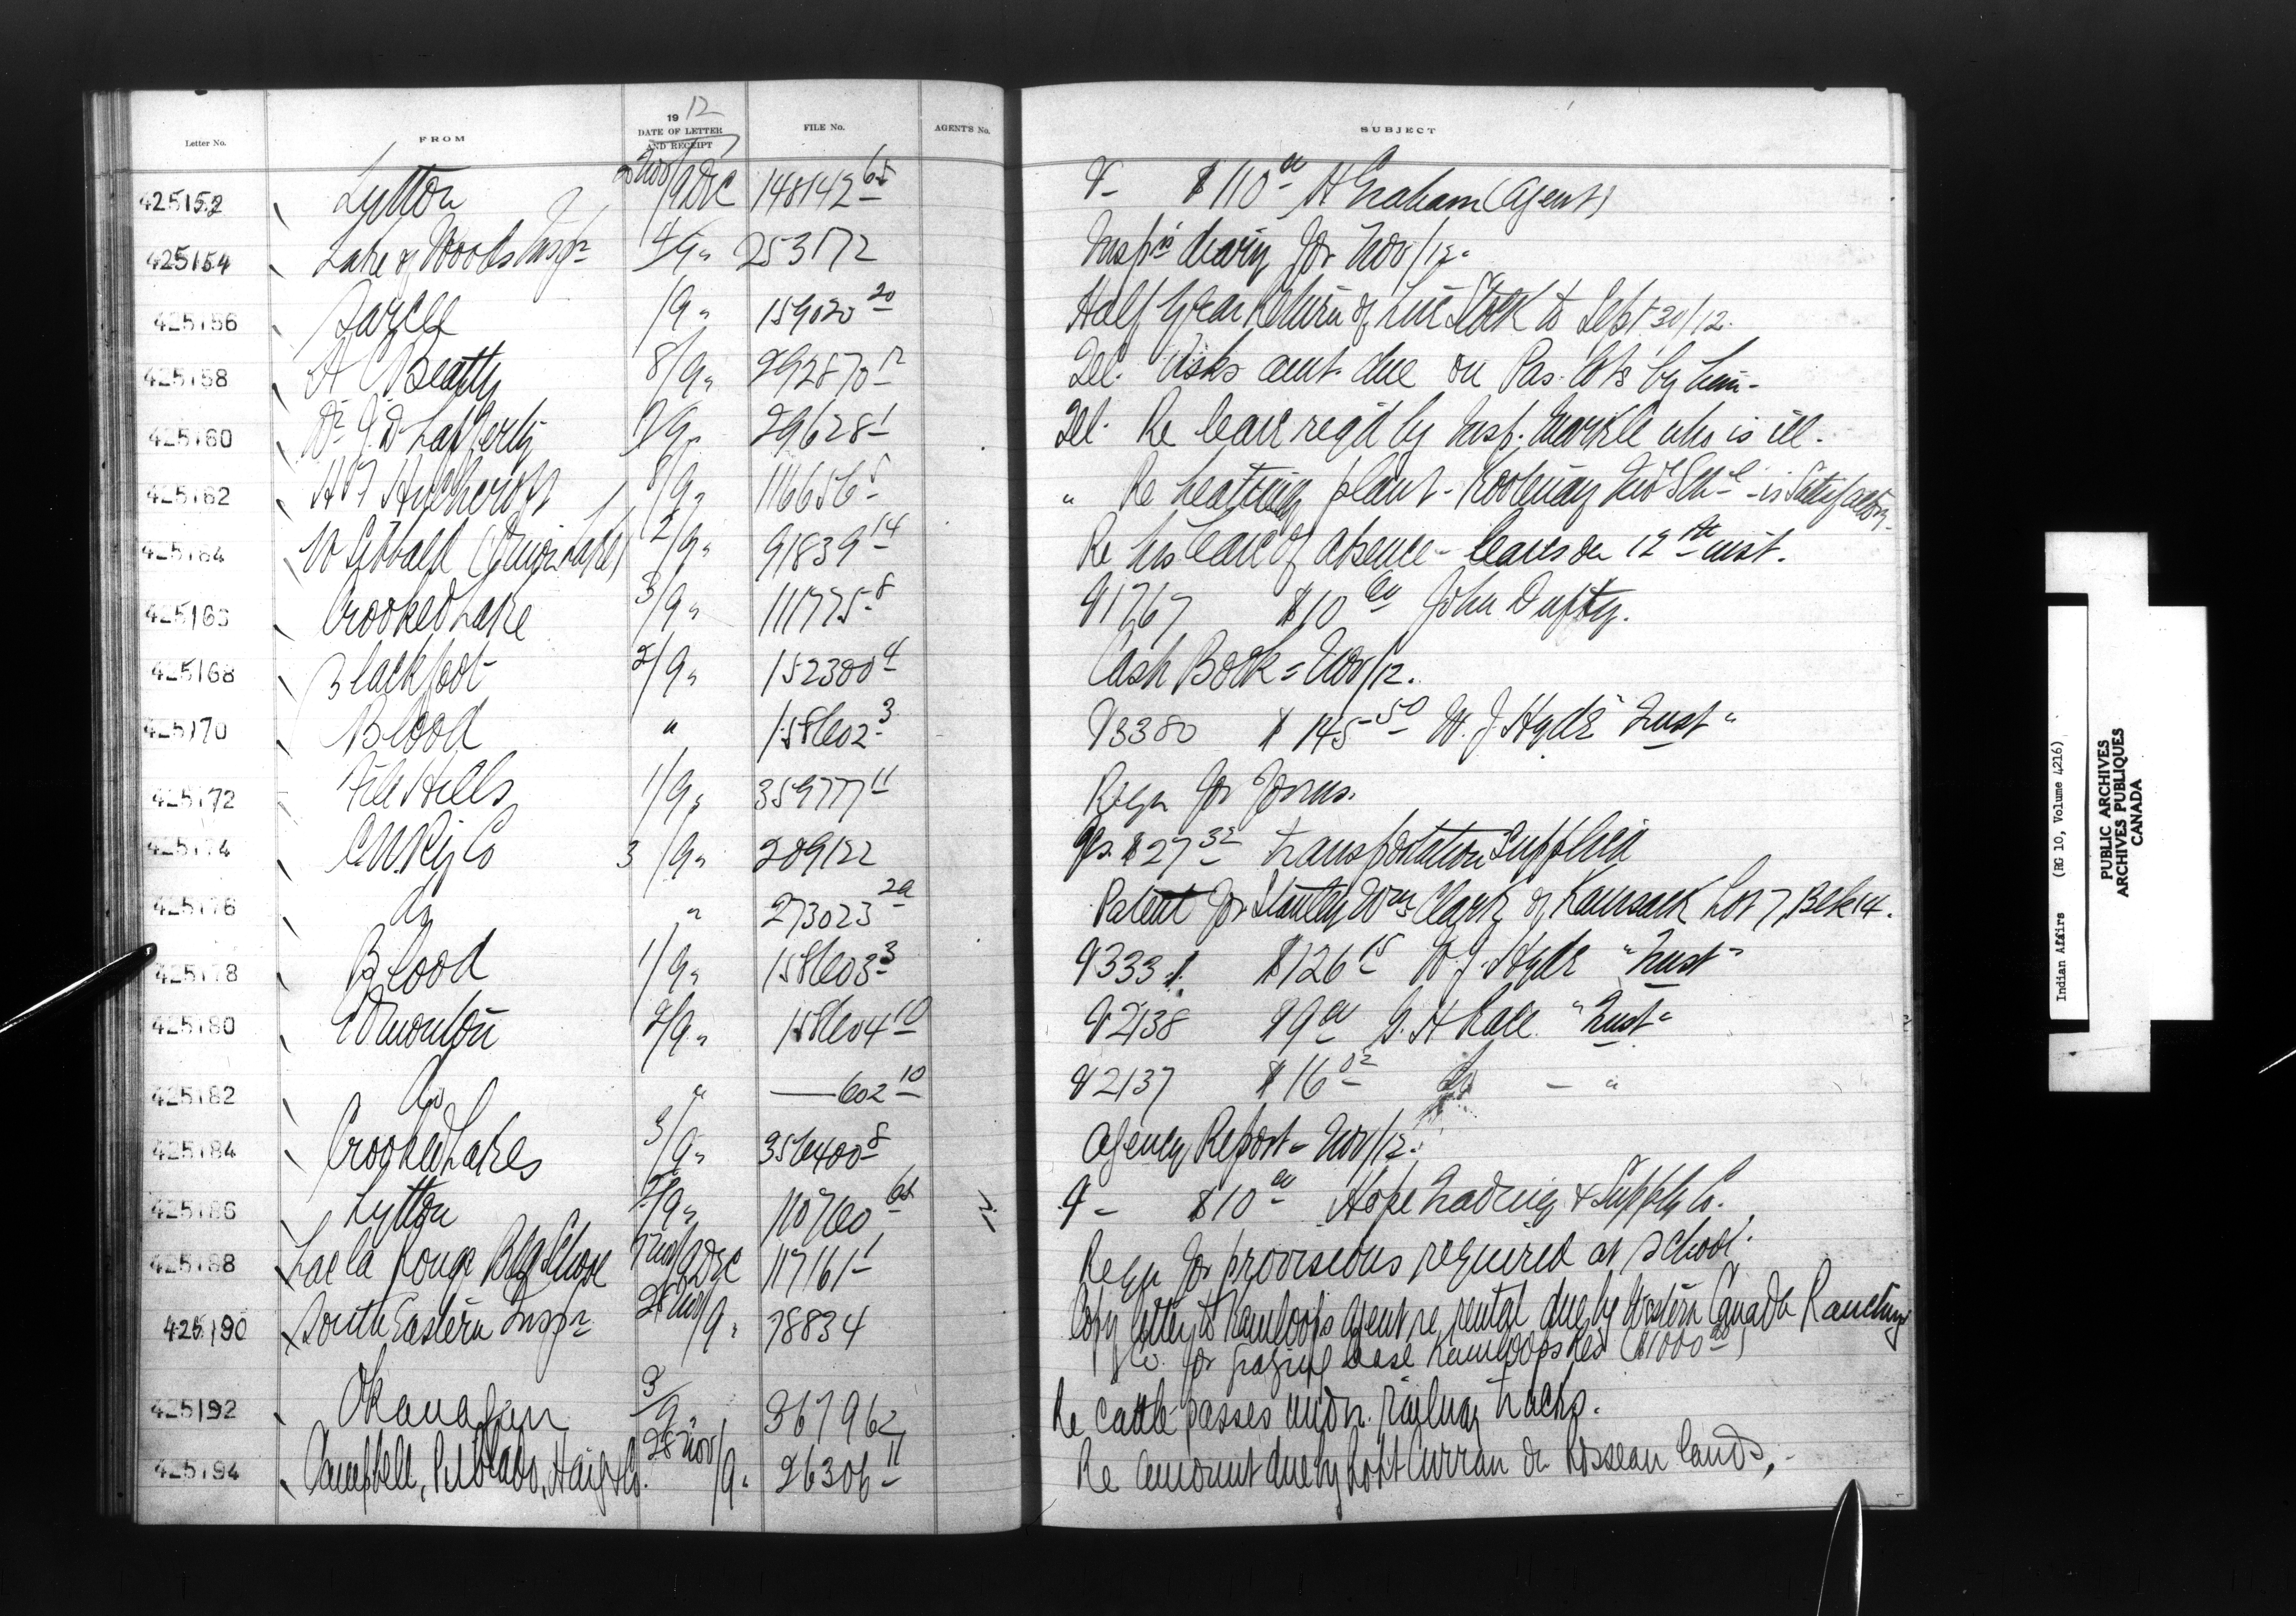 19 12
Letter No. FROM DATE OF LETTER AND RECEIPT FILE No. AGENT'S No. SUBJECT
425152 Lytton 9 Dec 148142 V - $110 00 H Graham (Agent)
425154 Lake of Woods Insp r 4/9 " 253172 Insp rs diary for Nov/12.
425156 Sarcee /9 " 159020 20 Half Year Return of Live Stock to Sept 30/12.
425158 A C Beatty 8/9 " 292870 12 Tel. Asks amt. due on Pas. lots by him -
425160 Dr J. D Lafferty 29628 1 Tel. Re leave reqd by Insp. Markle who is ill.
425162 8/9 " 116656 5 " Re heating plant - Kootenay Ind Schl - is Satisfactory.
425164 W Sibbald 2/9 " 91839 14 Re his leave of absence - leaves on 12th inst.
Crooked Lake 3/9 " 111775 8 V1767 $10 00 John
425168 Blackfoot 2/9 " 152300 4 Cash Book = Nov/12.
425170 Blood " 158602 3 V3380 $145 50 W. J. Hyde "Trust"
425172 File Hills 1/9 " 35977 11 Reqn for forms.
425174 C.N. Ry Co 3/9 " 209122 $27 32 Transportation Supplied
425176 Do " 273023 Patent for Stanley Wm Clark of Kamsack Lot 7, Blk 14.
425178 Blood 1/9 " 158603 3 V333 $126 15 W. J. Hyde "Trust"
425180 Edmonton 2/9 " 158604 10 V2138 $9 00 G. H Race "Trust"
425182 Do " — 602 10 V2137 $16 02 Do - "
425184 Crooked Lakes 3/9 " 356400 8 Agency Report - Nov/12.
425186 Lytton /9 " 110760 V - $10 00 Hope Trading & Supply Co.
425188 Lac la Ronge Bdg School 9 Dec 117161 1 Reqn for provisions required at school.
425190 South Eastern Inspr 28 Nov/9 " 78834 Copy letter to Kamloops Agent re rental due by Western Canada Ranching
Co. for grazing lease Kamloops Res ($1000 00)
425192 Okanagan 3/9 " 367962 Re cattle passes under railway tracks.
425194 Campbell, Haig & Co. 28 Nov/9 " 26306 11 Re amount due by Robt Curran on Rosseau lands, -
Indian Affairs (RG 10, Volume 4216)
PUBLIC ARCHIVES
ARCHIVES PUBLIQUES
CANADA